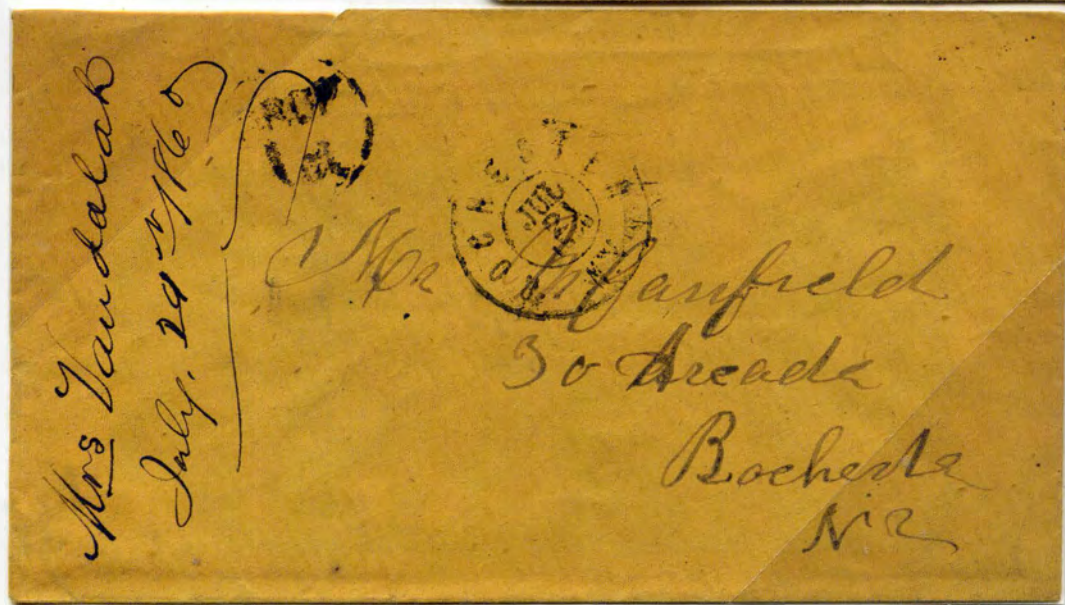 Mrs Vandalah
July. 29 1865
ROCHESTER N.Y.
JUL
Mr Ganfield
30 Arcade
Rochester
N Y